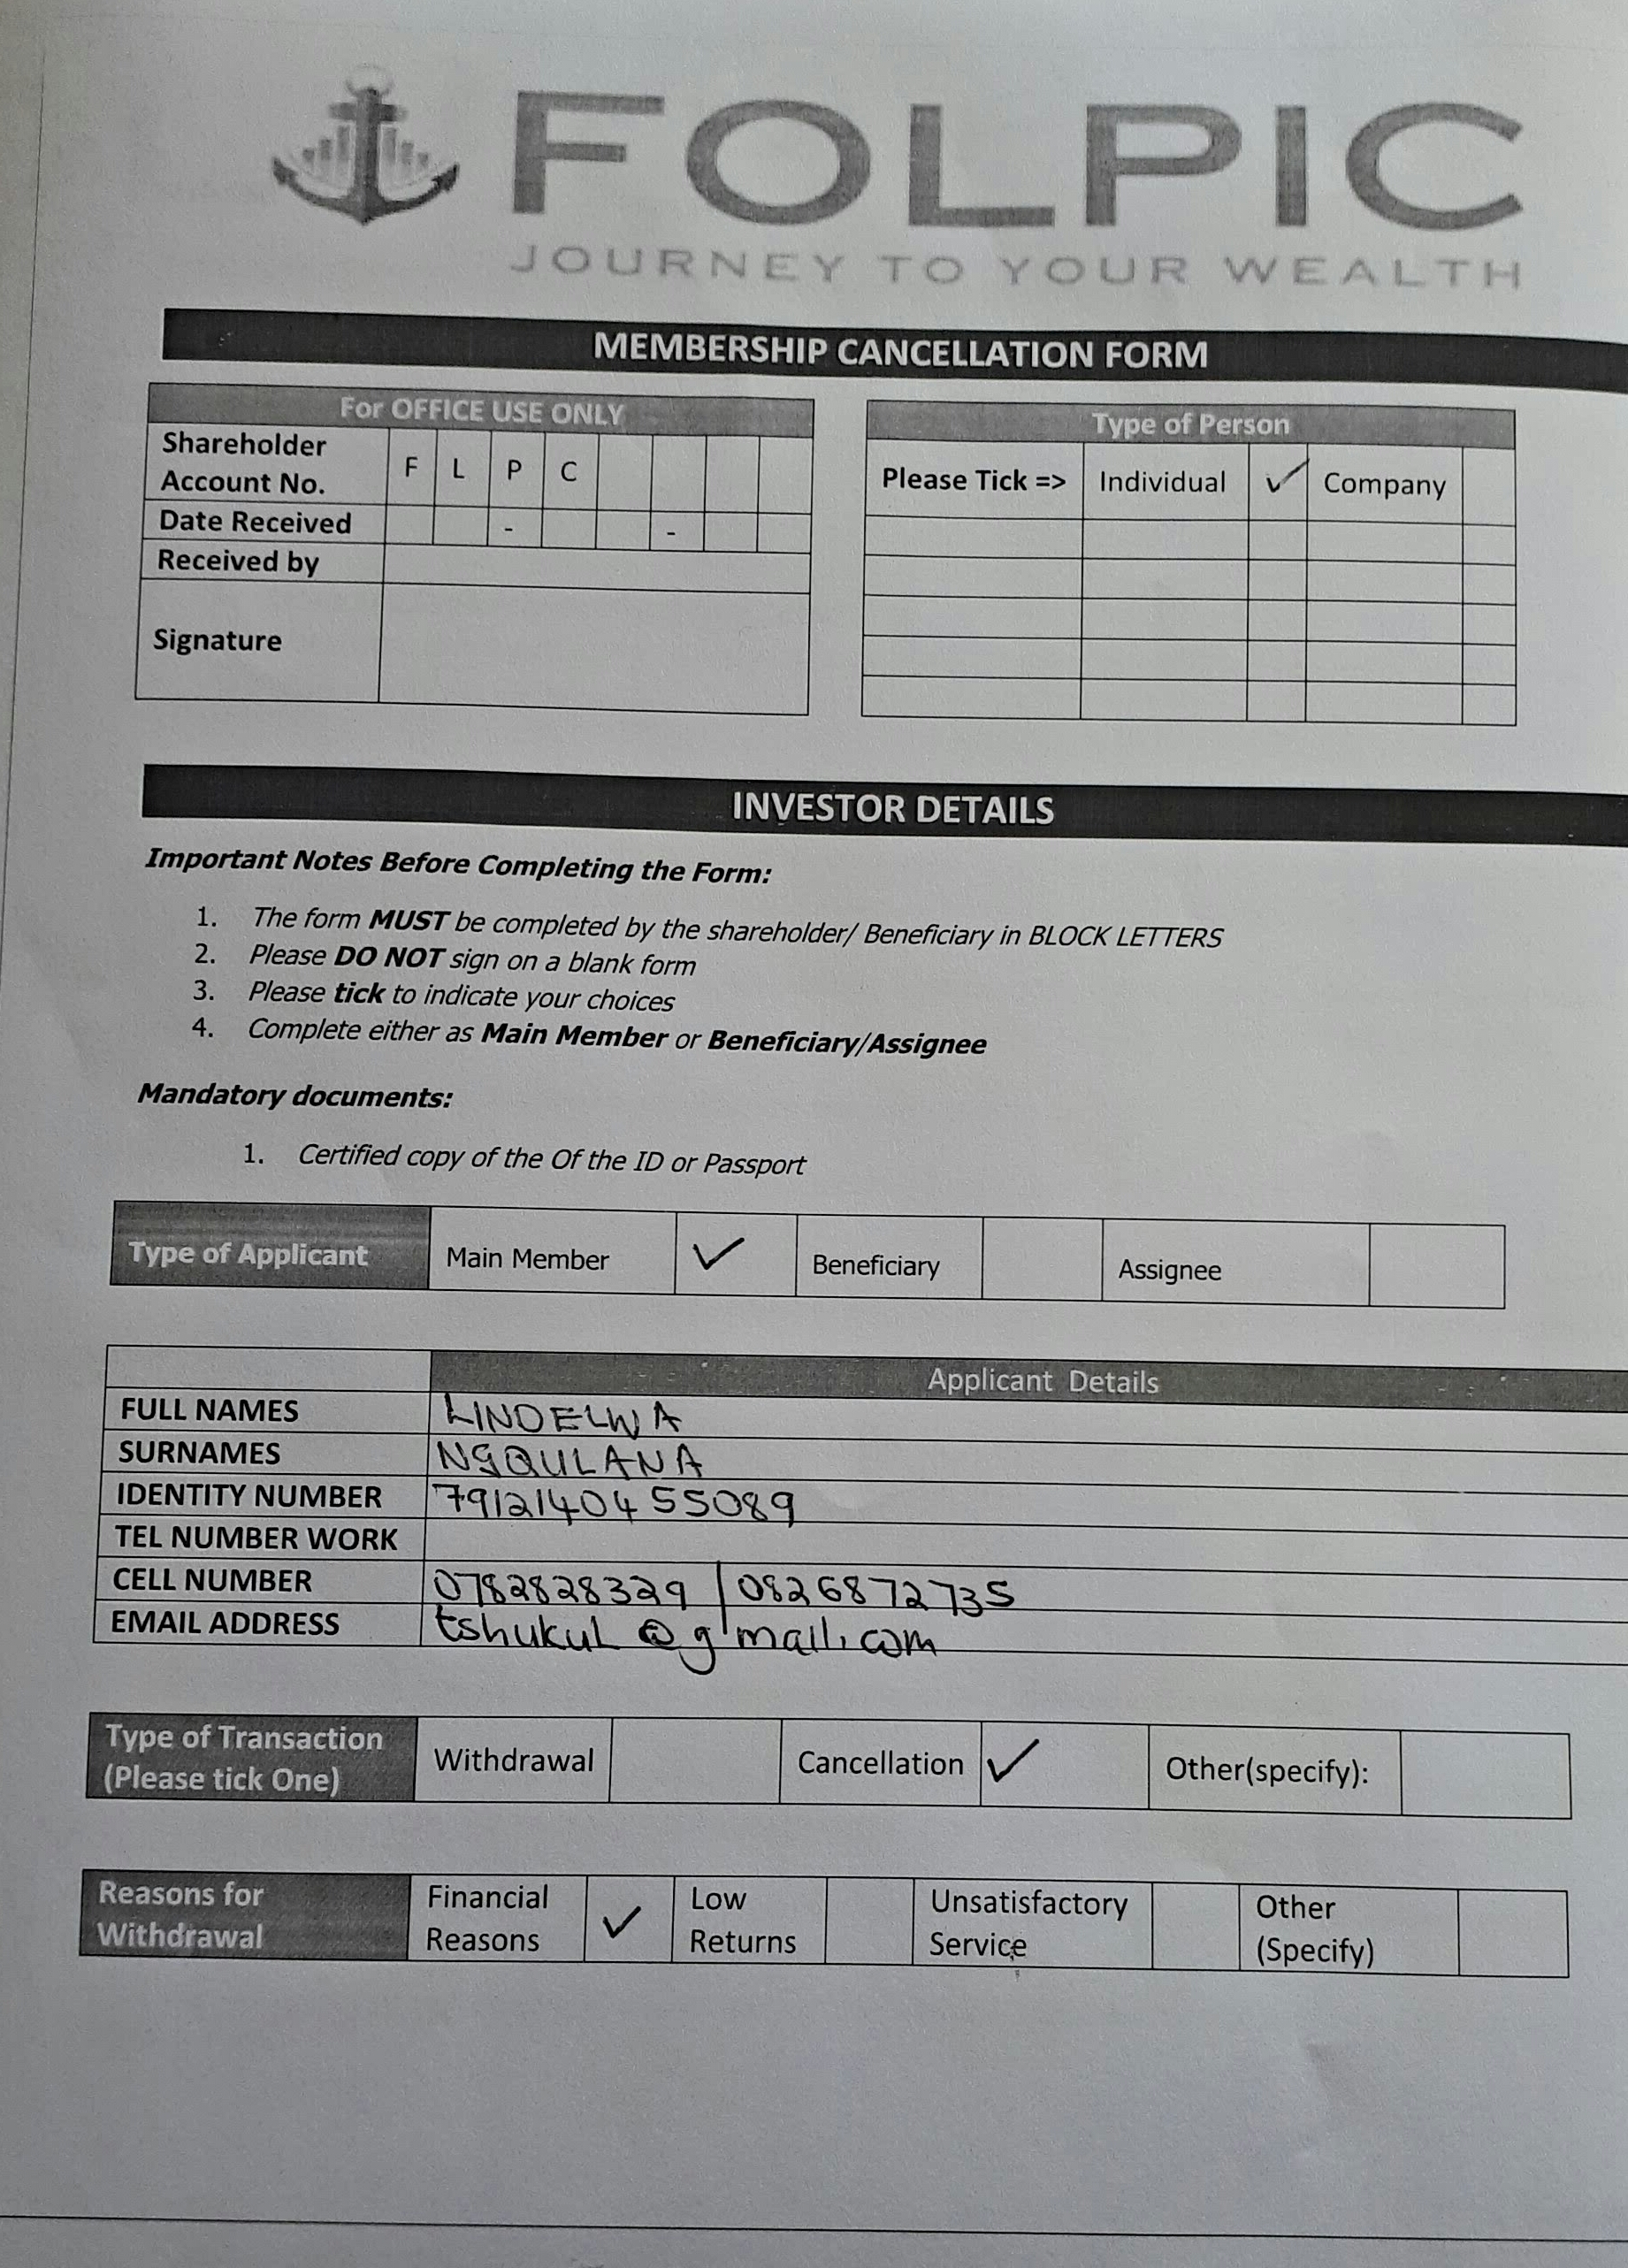 FOLPIC
JOURNEY TO YOUR WEALTH
MEMBERSHIP CANCELLATION FORM
For OFFICE USE ONLY
Shareholder Account No. F L P C
Date Received - -
Received by
Signature
Type of Person
Please Tick => Individual ✓ Company
INVESTOR DETAILS
Important Notes Before Completing the Form:
1. The form MUST be completed by the shareholder/ Beneficiary in BLOCK LETTERS
2. Please DO NOT sign on a blank form
3. Please tick to indicate your choices
4. Complete either as Main Member or Beneficiary/Assignee
Mandatory documents:
1. Certified copy of the Of the ID or Passport
Type of Applicant Main Member ✓ Beneficiary Assignee
Applicant Details
FULL NAMES LINDELWA
SURNAMES NGQULANA
IDENTITY NUMBER 7912140455089
TEL NUMBER WORK
CELL NUMBER 0782828329 / 0826872735
EMAIL ADDRESS tshukuL@gmail.com
Type of Transaction (Please tick One) Withdrawal Cancellation ✓ Other(specify):
Reasons for Withdrawal Financial Reasons ✓ Low Returns Unsatisfactory Service Other (Specify)